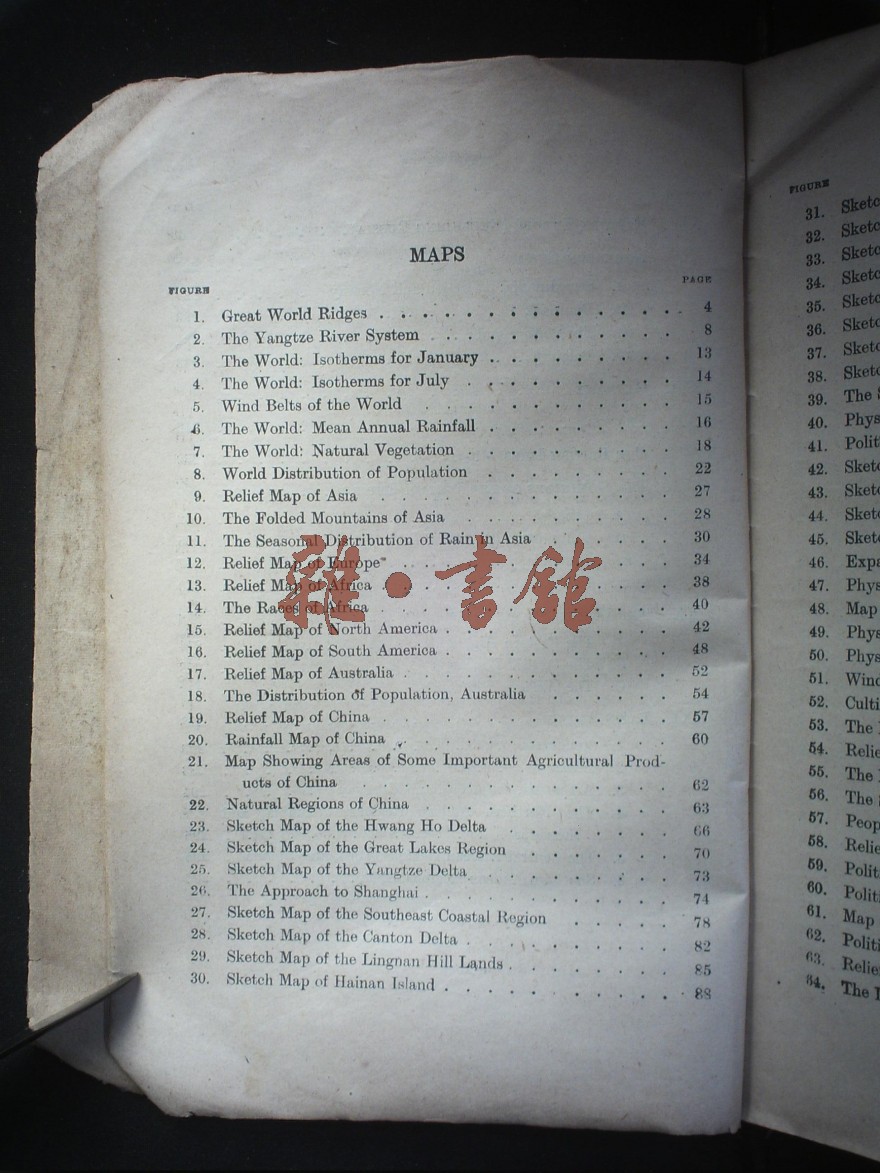 MAPS
FIGURE PAGE
1. Great World Ridges 4
2. The Yangtze River System 8
3. The World: Isotherms for January 13
4. The World: Isotherms for July 14
5. Wind Belts of the World 15
6. The World: Mean Annual Rainfall 16
7. The World: Natural Vegetation 18
8. World Distribution of Population 22
9. Relief Map of Asia 27
10. The Folded Mountains of Asia 28
11. The Seasonal Distribution of Rain in Asia 30
12. Relief Map of Europe 34
13. Relief Map of Africa 38
14. The Races of Africa 40
15. Relief Map of North America 42
16. Relief Map of South America 48
17. Relief Map of Australia 52
18. The Distribution of Population, Australia 54
19. Relief Map of China 57
20. Rainfall Map of China 60
21. Map Showing Areas of Some Important Agricultural Prod-
ucts of China 62
22. Natural Regions of China 63
23. Sketch Map of the Hwang Ho Delta 66
24. Sketch Map of the Great Lakes Region 70
25. Sketch Map of the Yangtze Delta 73
26. The Approach to Shanghai 74
27. Sketch Map of the Southeast Coastal Region 78
28. Sketch Map of the Canton Delta 82
29. Sketch Map of the Lingnan Hill Lands 85
30. Sketch Map of Hainan Island 88
雜·書館
FIGURE
31. Sketc
32. Sketc
33. Sketc
34. Sketc
35. Sketc
36. Sketc
37. Sketc
38. Sketc
39. The
40. Phys
41. Polit
42. Sketc
43. Sketc
44. Sketc
45. Sketc
46. Expa
47. Phys
48. Map
49. Phys
50. Phys
51. Wind
52. Culti
53. The
54. Relie
55. The
56. The
57. Peop
58. Relie
59. Polit
60. Politi
61. Map
62. Politi
63. Relie
64. The